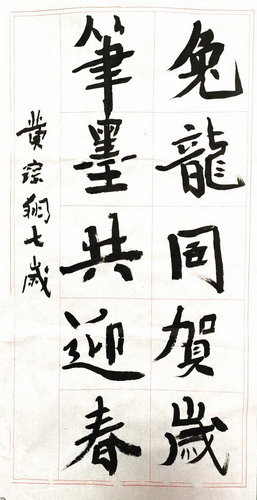 兔龍同賀歲
筆墨共迎春
黄宗翔七歲